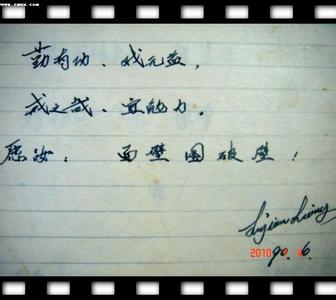 勤有功、戏无益,
戒之哉、宜勉力。
愿汝: 面壁图破壁!
2010
90.6.